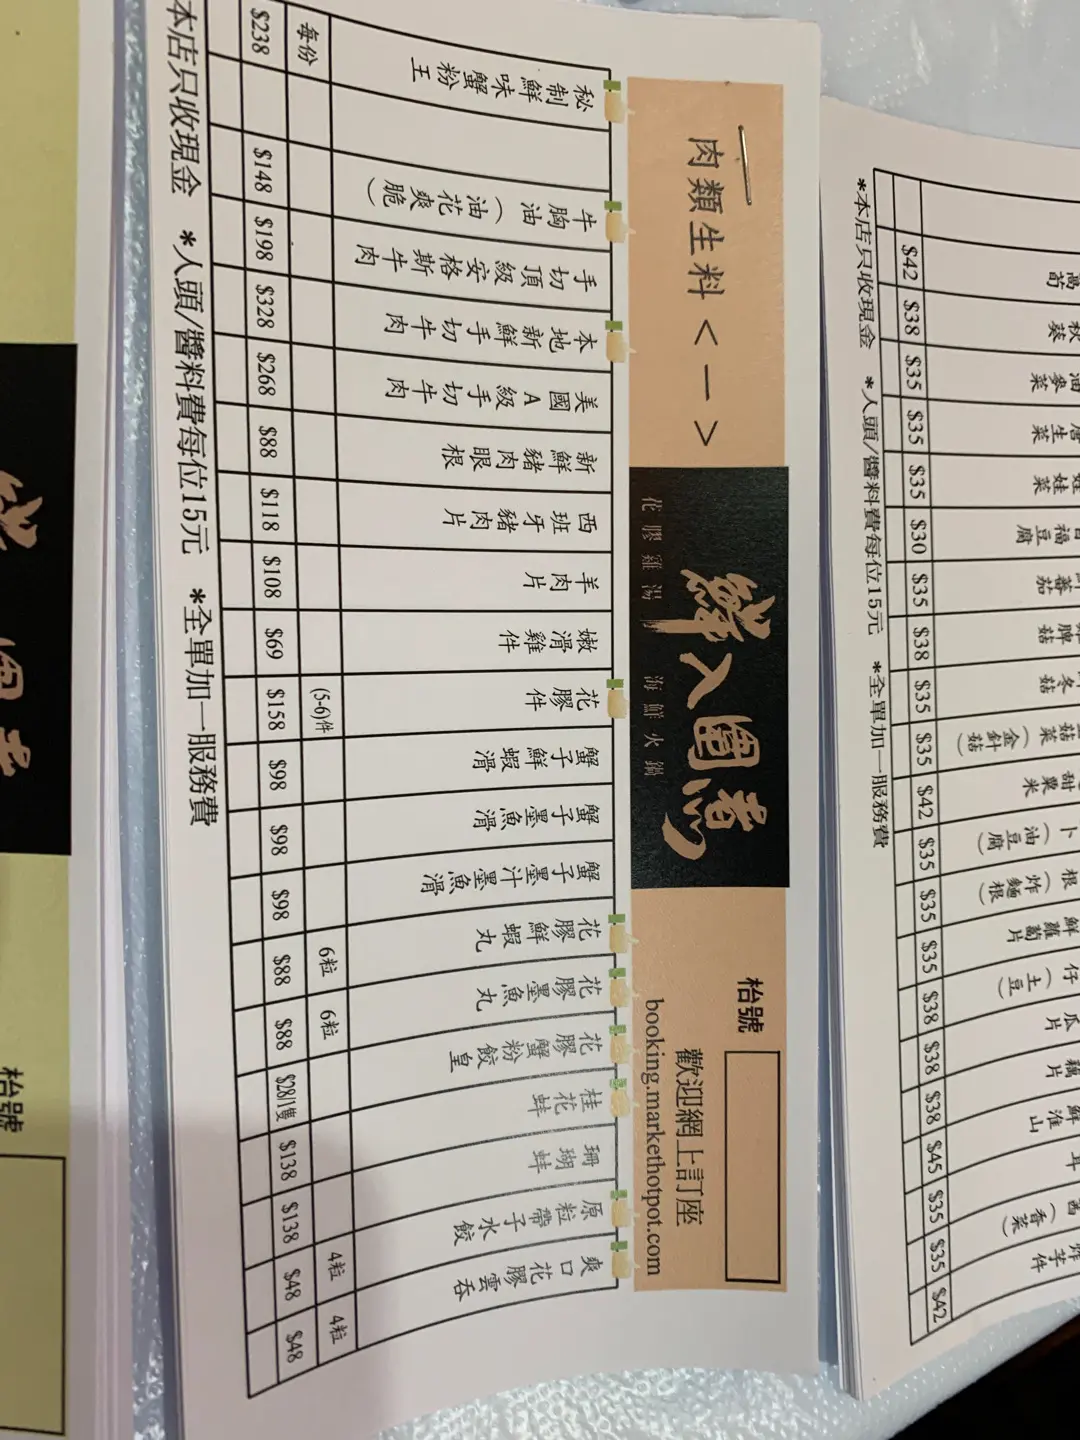 肉類生料<一>
鮮入圍煮
花膠雞湯 海鮮火鍋
枱號
歡迎網上訂座
booking.markethotpot.com
秘制鮮味蟹粉王 每份 $238
牛胸油（油花爽脆） $148
手切頂級安格斯牛肉 $198
本地新鮮手切牛肉 $328
美國A級手切牛肉 $268
新鮮豬肉眼根 $88
西班牙豬肉片 $118
羊肉片 $108
嫩滑雞件 $69
花膠件 (5-6)件 $158
蟹子鮮蝦滑 $98
蟹子墨魚滑 $98
蟹子墨汁墨魚滑 $98
花膠鮮蝦丸 6粒 $88
花膠墨魚丸 6粒 $88
花膠蟹粉餃皇 $28/1隻
桂花蚌 $138
珊瑚蚌 $138
原粒帶子水餃 4粒 $48
爽口花膠雲吞 4粒 $48
本店只收現金 *人頭/醬料費每位15元 *全單加一服務費
萵筍 $42
秋葵 $38
油麥菜 $35
唐生菜 $35
娃娃菜 $35
百福豆腐 $30
蕃茄 $35
脾菇 $38
冬菇 $35
菇菜（金針菇） $35
甜粟米 $42
卜（油豆腐） $35
根（炸麵根） $35
鮮蘿蔔片 $35
仔（土豆） $38
瓜片 $38
藕片 $38
鮮淮山 $45
耳 $35
茜（香菜） $35
炸芋件 $42
*本店只收現金 *人頭/醬料費每位15元 *全單加一服務費
枱號